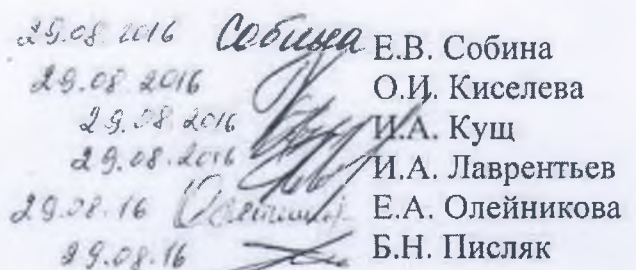 29.08.2016 Собина Е.В. Собина
29.08.2016 О.И. Киселева
29.08.2016 И.А. Кущ
29.08.2016 И.А. Лаврентьев
29.08.16 Е.А. Олейникова
29.08.16 Б.Н. Писляк